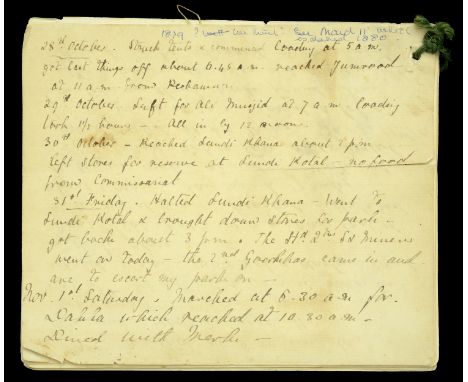 1879
28th October. Struck tents & commenced loading at 5 a.m.
got last things off about 6.45 a.m. reached Jumrood
at 11 a.m. from Peshawur
29th October. Left for Ali Musjid at 7 a.m. loading
took 1½ hours - All in by 12 noon.
30th October - Reached Lundi Khana about 1 p.m.
left stores for reserve at Lundi Kotal - no food
from Commissariat
31st Friday. Halted Lundi Khana - Went to
Lundi Kotal & brought down stores for park -
got back about 3 p.m. The Hd. Qrs Sa Miners
went on today - the 2nd Goorkhas came in and
are to escort my park on -
Nov. 1st Saturday. Marched at 6.30 a.m for
Dakka which reached at 10.30 a.m -
Dined with